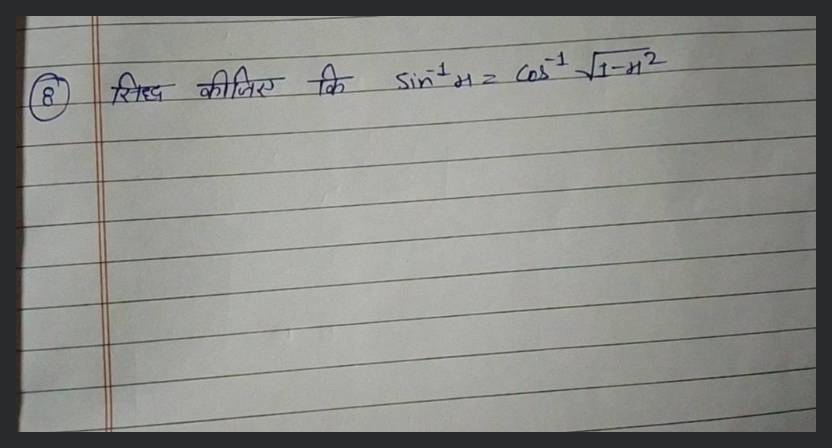 8 सिद्ध कीजिए कि sin⁻¹ x = cos⁻¹ √1-x²